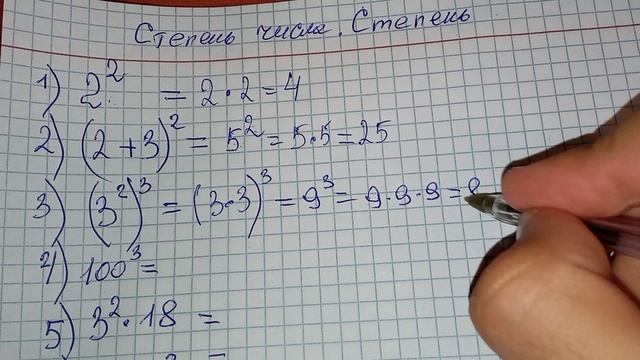 Степень числа. Степень
1) 2² = 2·2=4
2) (2+3)² = 5² = 5·5=25
3) (3²)³ = (3·3)³ = 9³ = 9·9·9=
4) 100³=
5) 3²·18 =